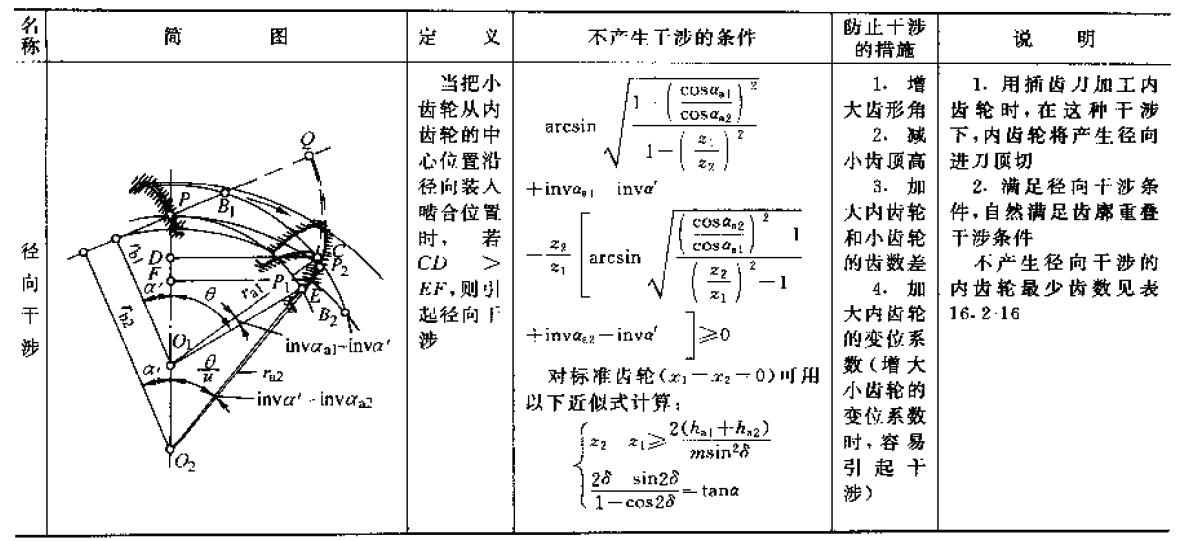 名称
简 图
定 义
不产生干涉的条件
防止干涉的措施
说 明
径向干涉
Q
P
B₁
D
F
C
P₂
P₁
E
B₂
r_b1
r_b2
α′
θ
r_a1
O₁
invα_a1-invα′
α′
θ/u
r_a2
invα′-invα_a2
O₂
当把小
齿轮从内
齿轮的中
心位置沿
径向装入
啮合位置
时， 若
CD >
EF，则引
起径向干
涉
arcsin √((1-(cosα_a1/cosα_a2)²)/(1-(z₁/z₂)²))
+invα_a1 invα′
-z₂/z₁[arcsin √(((cosα_a2/cosα_a1)² 1)/((z₂/z₁)²-1))
+invα_a2-invα′]≥0
对标准齿轮(x₁=x₂=0)可用
以下近似式计算：
z₂ z₁≥2(h_a1+h_a2)/(msin²δ)
(2δ sin2δ)/(1-cos2δ)=tanα
1. 增
大齿形角
2. 减
小齿顶高
3. 加
大内齿轮
和小齿轮
的齿数差
4. 加
大内齿轮
的变位系
数（增大
小齿轮的
变位系数
时，容易
引起干
涉）
1. 用插齿刀加工内
齿轮时，在这种干涉
下，内齿轮将产生径向
进刀顶切
2. 满足径向干涉条
件，自然满足齿廓重叠
干涉条件
不产生径向干涉的
内齿轮最少齿数见表
16.2-16